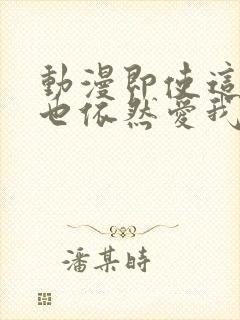 動漫即使這
也依然愛我
潘某時